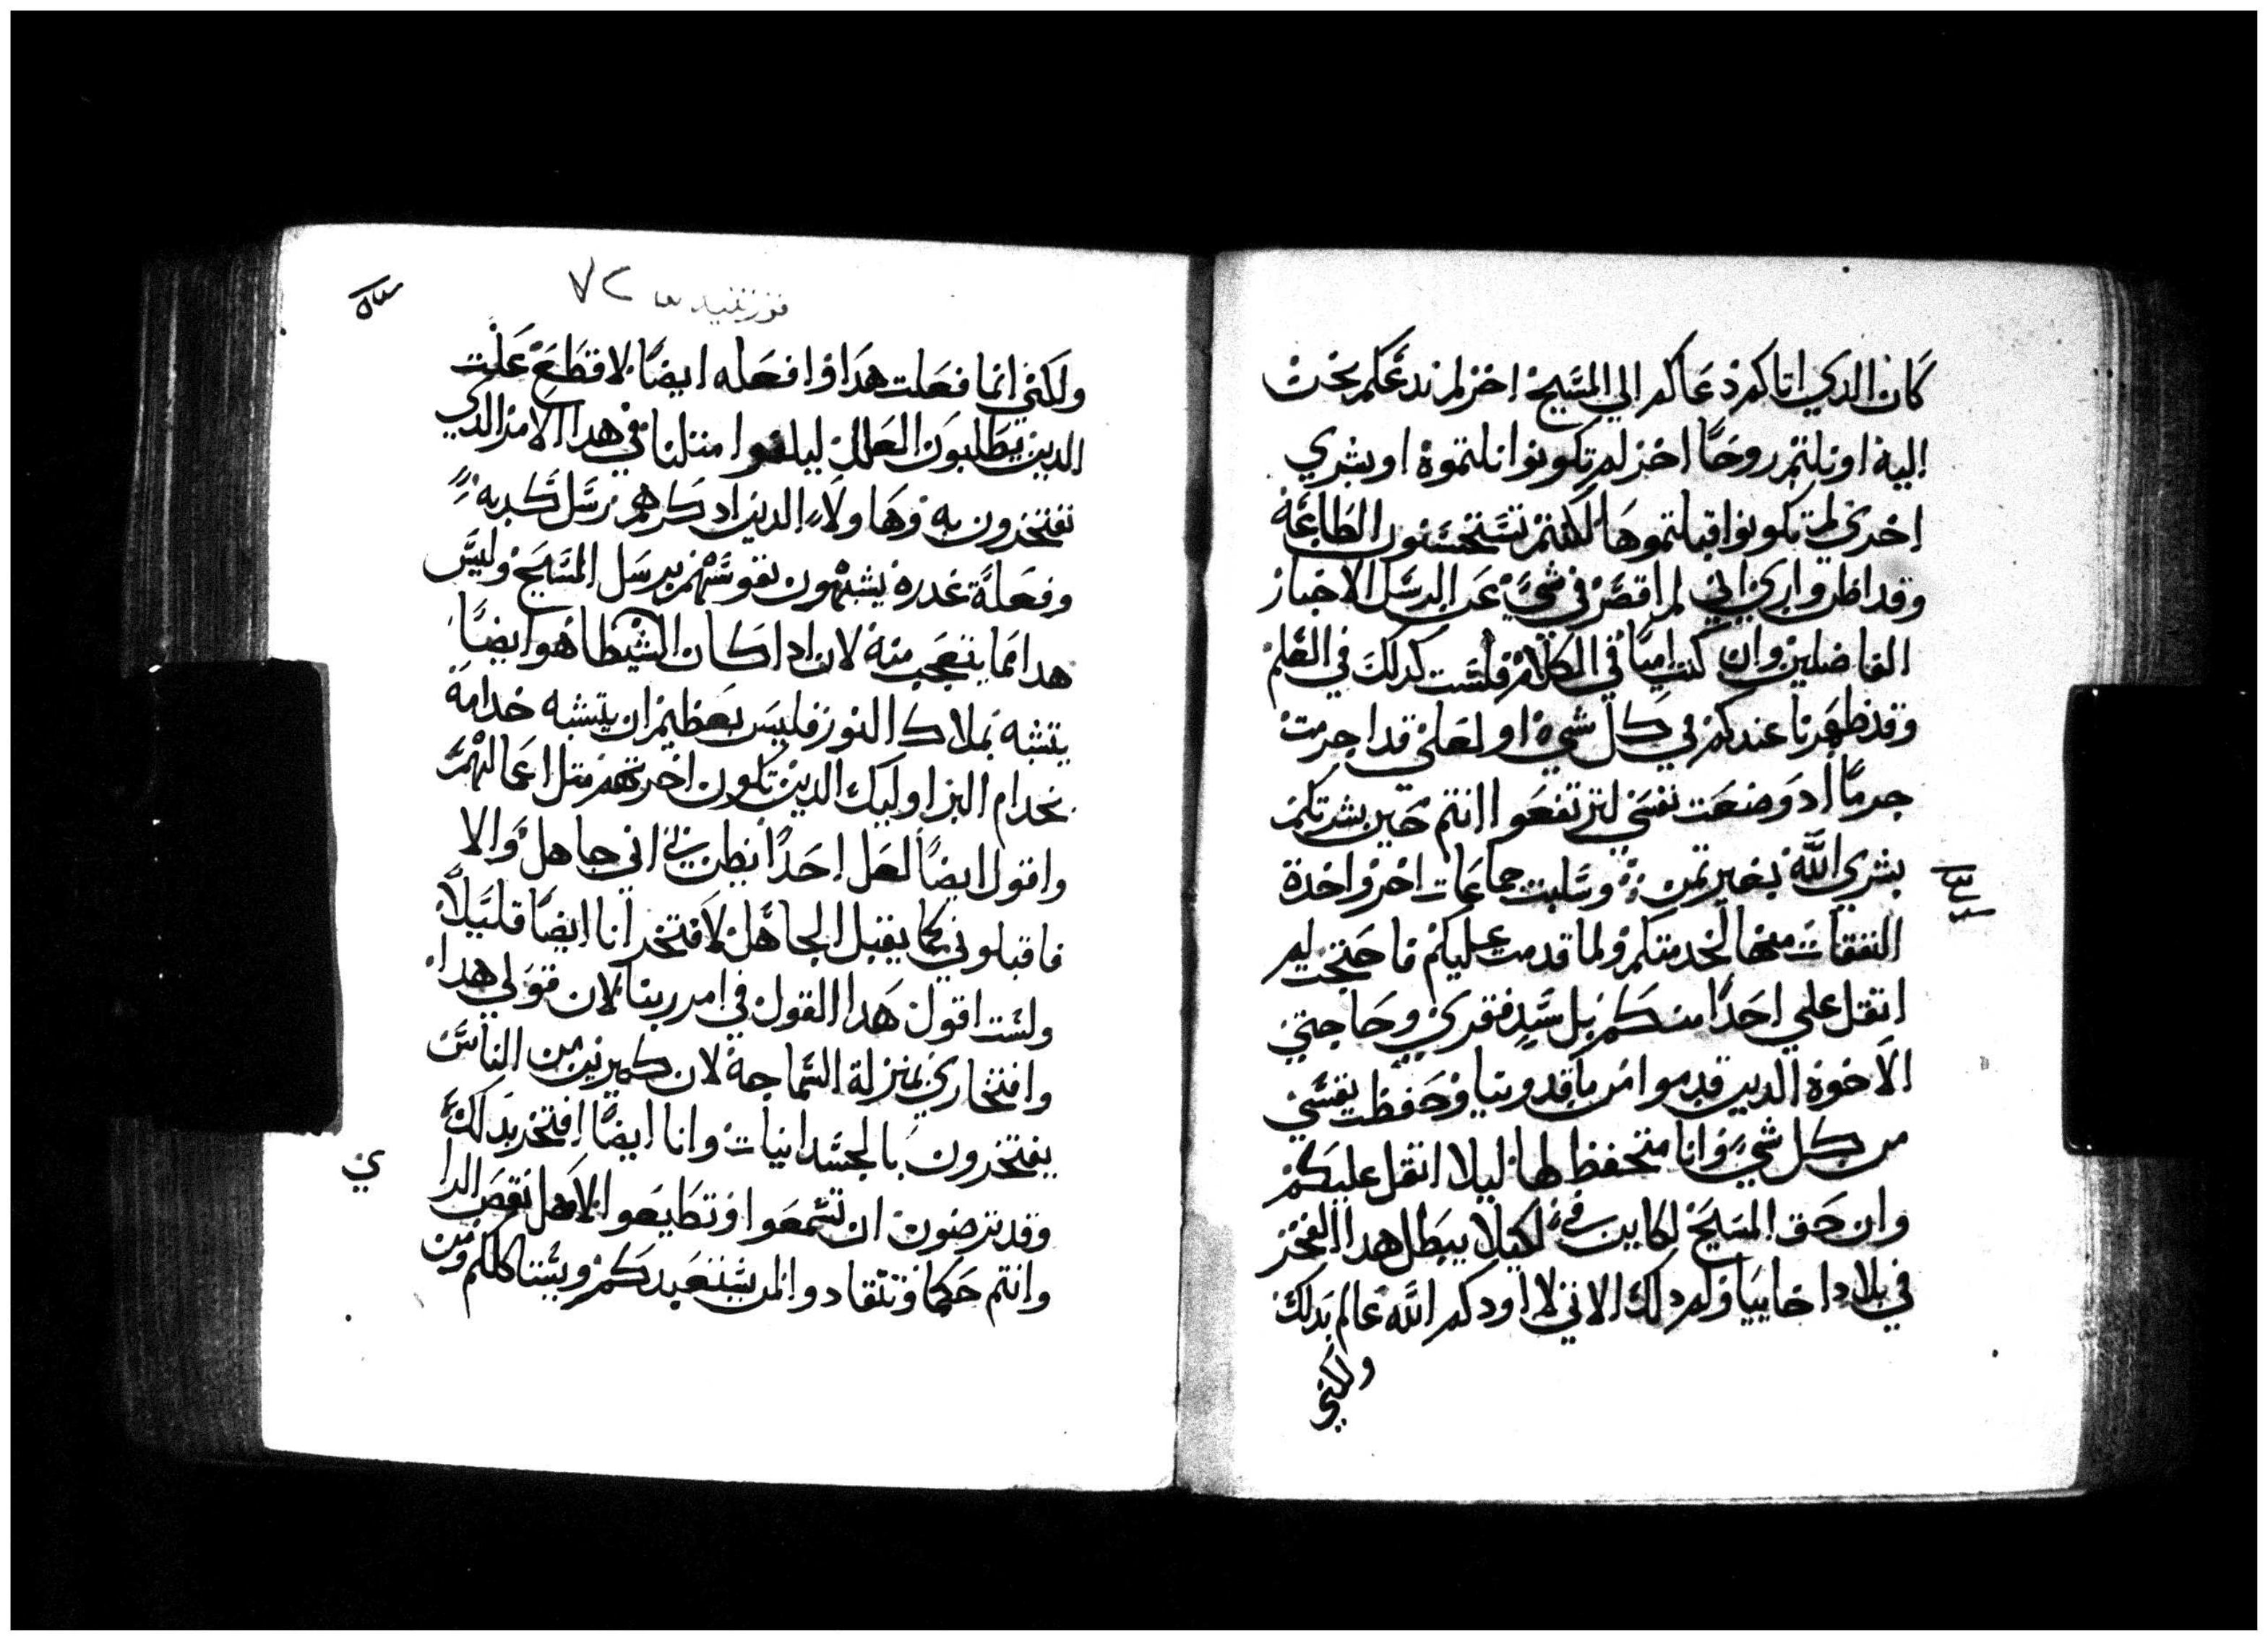 كان الدي اتاكم دعاكم الي المسيح اخر لم ندعكم نحن
اليه او نلتم روحًا اخر لم تكونوا نلتموه او بشري
اخري لم تكونوا قبلتموها لكنتم تستحسنون الطاعه
وقد اظن واري اني لم اقصر في شي عن الرسل الاخيار
الفاضلين وان كنت اميًا في الكلام فلست كدلك في العلم
وقد ظهرنا عندكم في كل شي او لعلي قد اجرمت
جرمًا اد وضعت نفسي لترتفعوا انتم حين بشرتكم
بشري الله بغير تمن وسلبت جماعات اخر واخدة
النفقات منها لخدمتكم ولما قدمت عليكم فاحتجت لم
اتقل علي احدًا منكم بل سد فقري وحاجتي
الاخوه الدين قدموا من ماقدونيا وحفظت نفسي
من كل شي وانا متحفظ لها ليلا اتقل عليكم
وان حق المسيح لكاين في لكيلا يبطل هدا الفخر
في بلاد اخاييا ولم دلك الاني لا اودكم الله عالم بدلك
ولكني
قورنتيه ٧٢
ولكني انما فعلت هدا وافعله ايضًا لاقطع علت
الدين يطلبون العلل ليلفوا متلنا في هدا الامر الدي
نفتخرون به وهاولاء الدين ادكرهم رسل كدبه
وفعلة غدره يشبهون نفوسهم برسل المسيح وليس
هدا مما يتعجب منه لان ادا كان الشيطا هو ايضًا
يتشبه بملاك النور فليس بعظيم ان يتشبه خدامه
بخدام البر اوليك الدين تكون اخرتهم متل اعمالهم
واقول ايضًا لعل احدًا يظن بي اني جاهل والا
فاقبلوني كما يقبل الجاهل لافتخر انا ايضًا قليلًا
ولست اقول هدا القول في امر ربنا لان قولي هدا
وافتخاري بمنزلة السماجة لان كثيرين من الناس
يفتخرون بالجسدانيات وانا ايضًا افتخر بدلك
وقد ترضون ان تسمعوا وتطيعوا لاهل نقص الرا
وانتم حكما وتنقادوا لمن يستعبدكم ويسنا كلكم ومن
ي